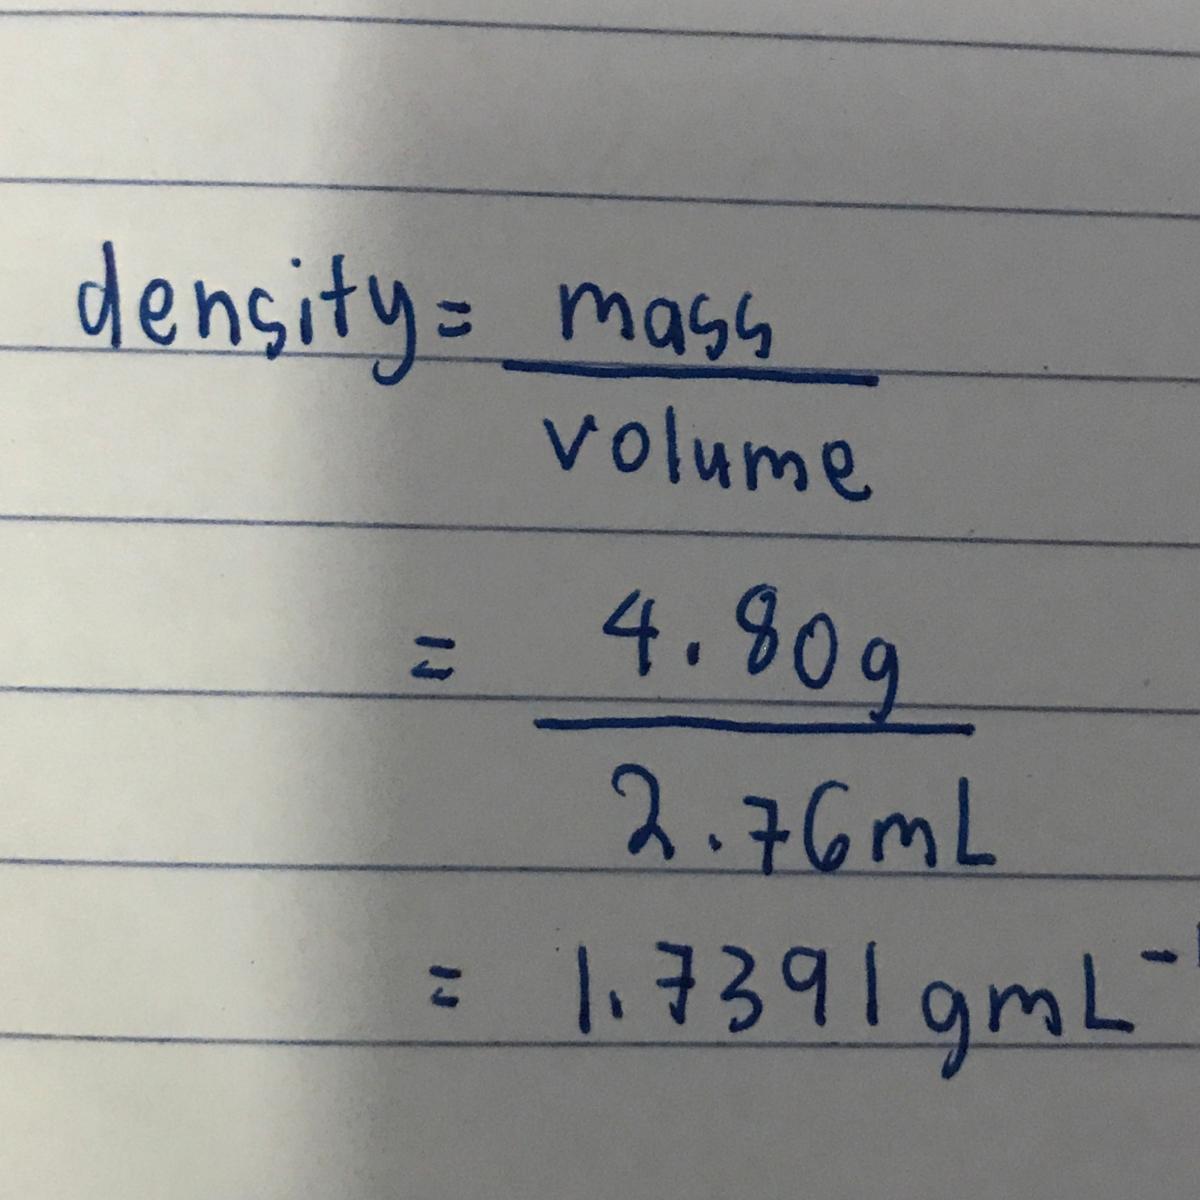 density = mass
volume
= 4.80g
2.76mL
= 1.7391 gmL⁻¹